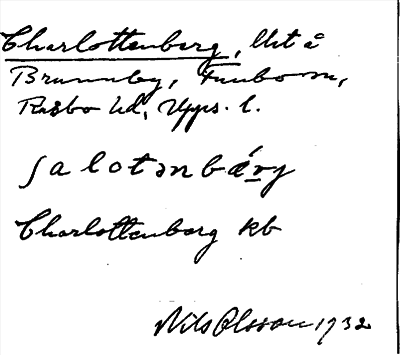 Charlottenberg, lht å
Brunnby, Funbo sn,
Rasbo hd, Upps. l.
ʃalotənbǽry
Charlottenberg kb
Nils Olsson 1932